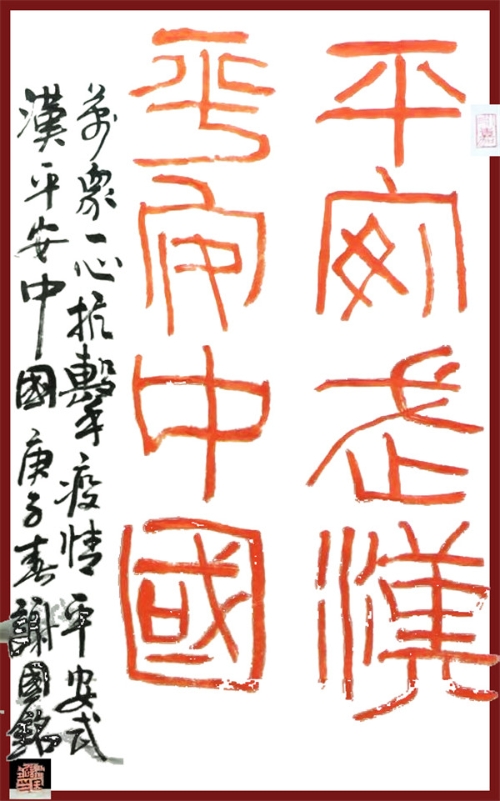 平安武漢
平安中國
萬衆一心抗擊疫情平安武
漢平安中國庚子春謝國銘